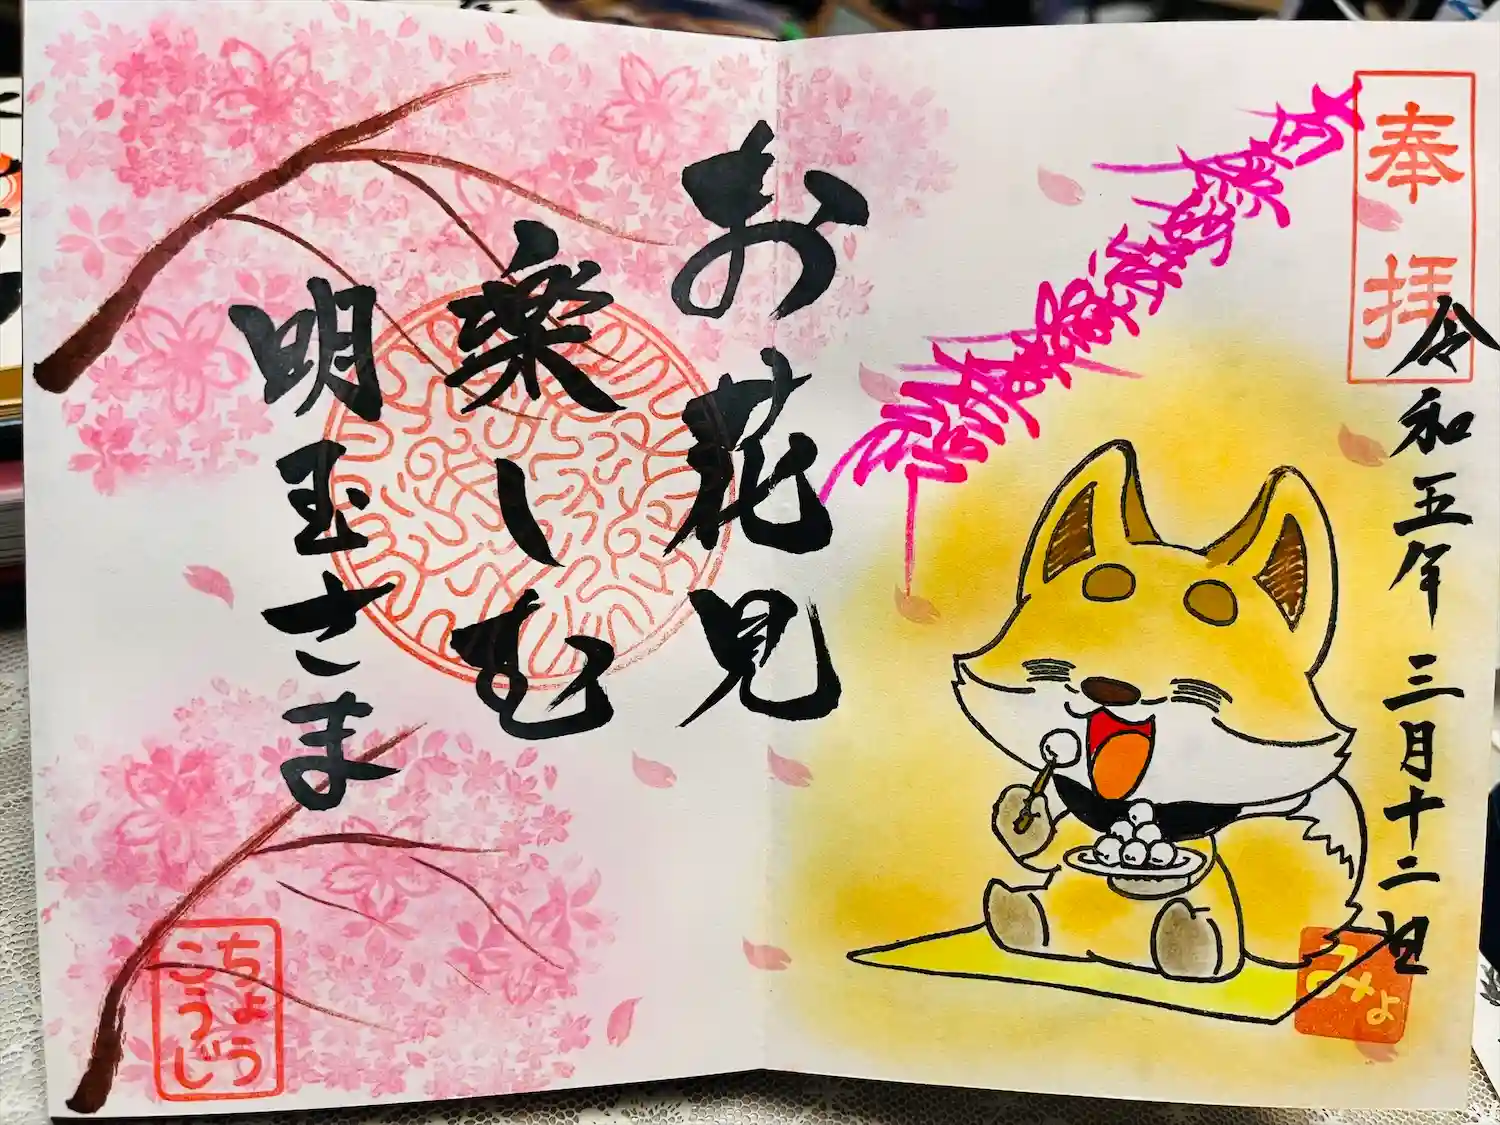 奉拝
令和五年三月十二日
みょ
お花見
楽しむ
明玉さま
ちょう
こうじ